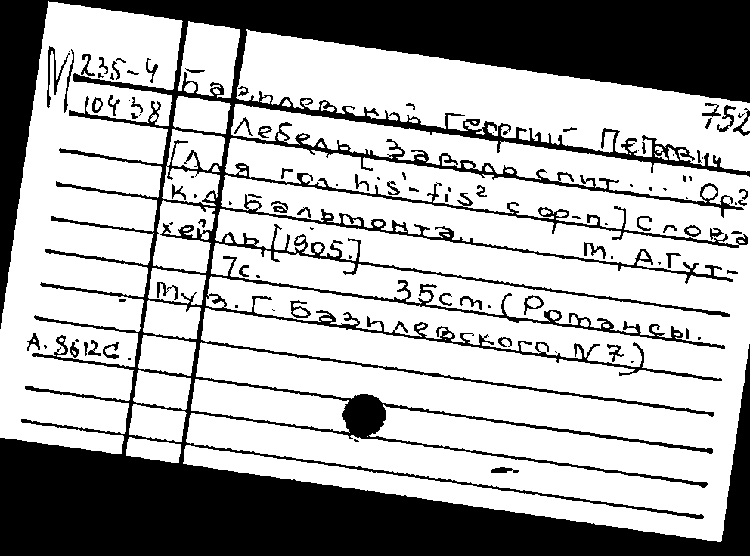 752
М 235-4
10438
Базилевский, Георгий Петрович
Лебедь. „Заводь спит..." Ор?
[Для гол. his¹-fis² с ф-п.] Слова
К.Д. Бальмонта. М., А. Гут-
хейль, [1905.]
7с. 35cm. (Романсы.
Муз. Г. Базилевского, N 7.)
A. 8612 G.